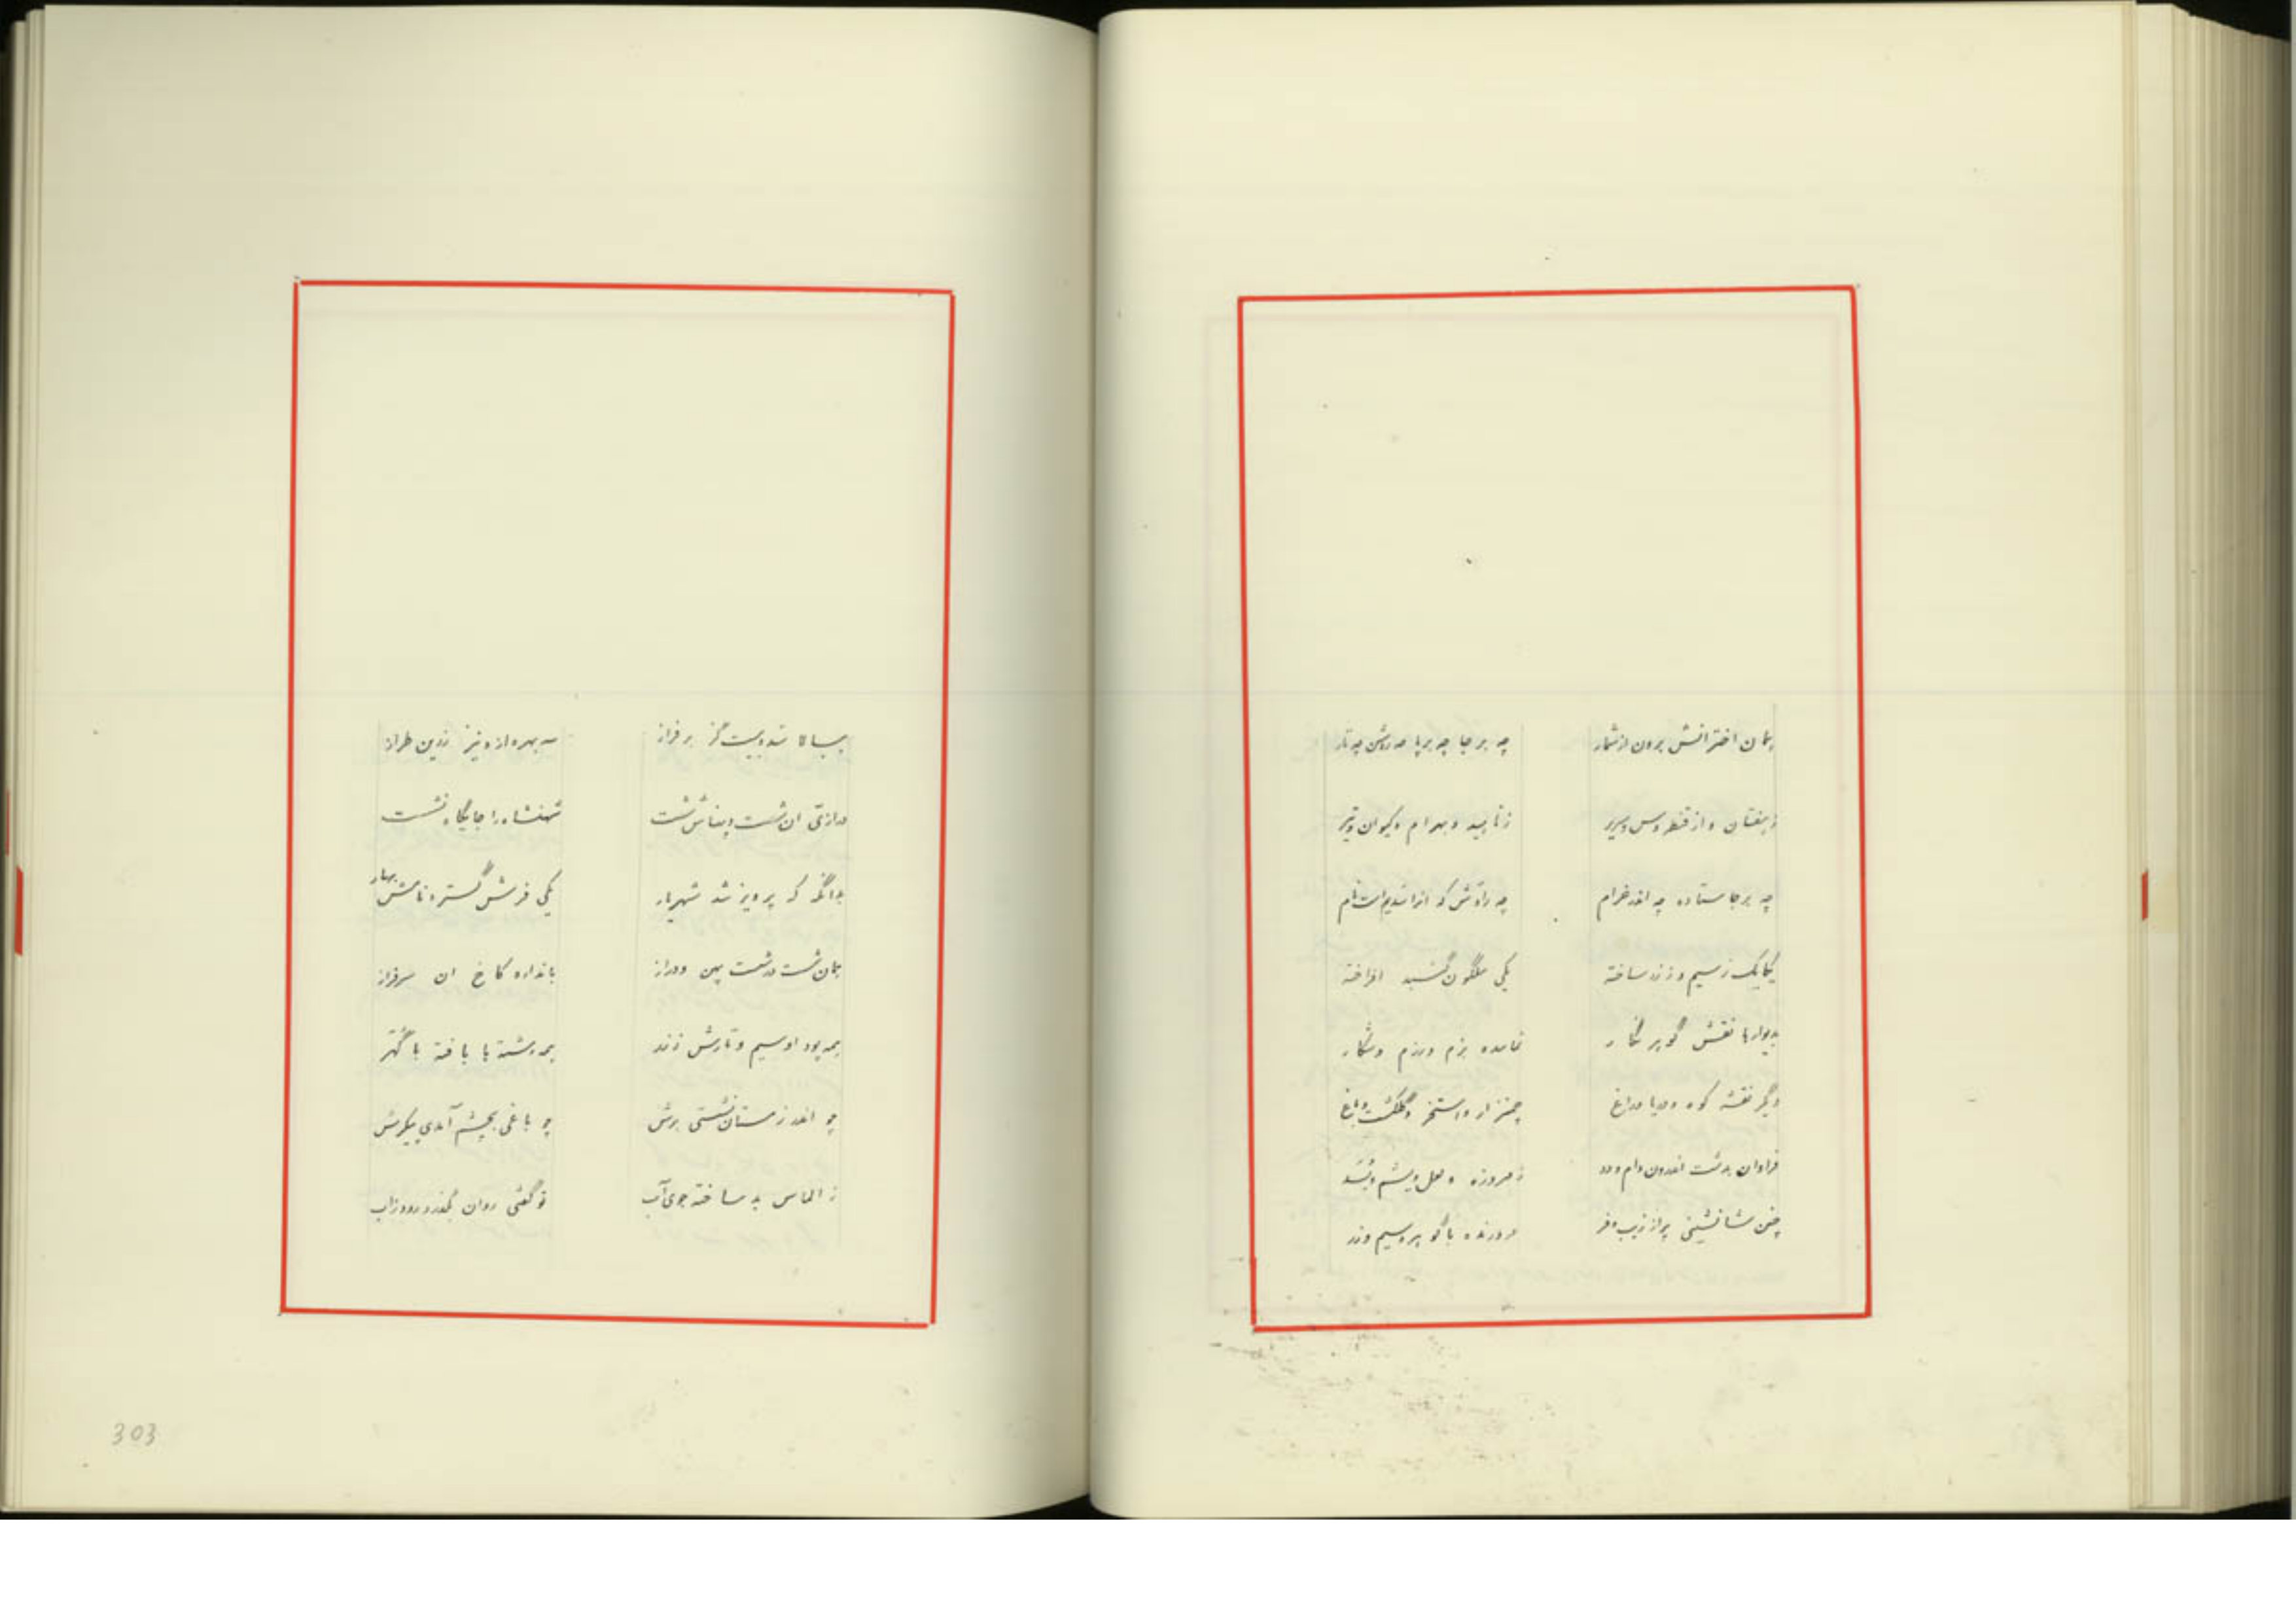 همان اخترانش برون از شمار
چه بر جا چه بر پا چه روشن چه تار
و از قنطروس و سریر
ز ناهید و بهرام و کیوان و تیر
چه برجا ستاده چه اندر خرام
چه را نام
یکایک ز سیم و ز زر ساخته
یکی نیلگون گنبد افراخته
بدیوارها نقش گوهر نگار
نماینده بزم و رزم و شکار
دگر نقشه کوه و دریا و راغ
چمنزار و استخر و گلگشت و باغ
فراوان بدشت اندرون دام و دد
ز و لعل و یشم و بُسَد
چنین شانشینی پر از زیب و فر
با گوهر و سیم و زر
ببالا شده بیست گز بر فراز
سه بهره ازو نیز زرین طراز
درازی آن شست و پهناش شست
شهنشاه را جایگاه نشست
بدانگه که پرویز شد شهریار
یکی فرش گسترد نامش بهار
همان شست در شست پهن و دراز
باندازه کاخ آن سرفراز
همه پود او سیم و تارش ز زر
همه رشته با بافته با گهر
چو اندر زمستان نشستی برش
چو باغی بچشم آمدی پیکرش
ز الماس بد ساخته جوی آب
تو گفتی روان
303